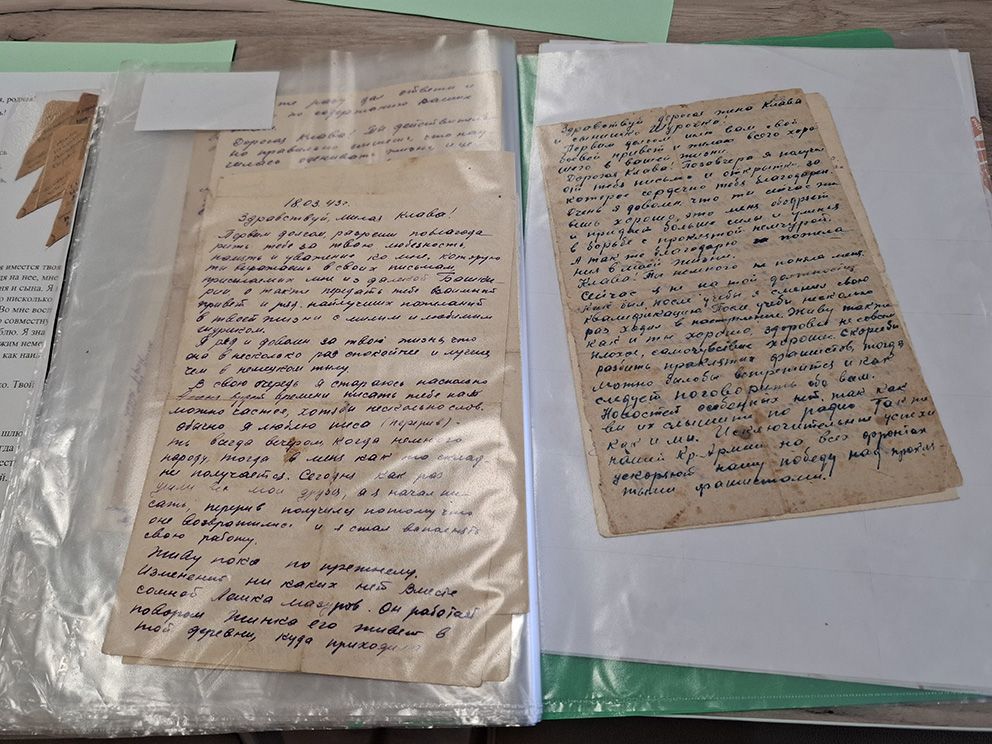 я, родная!
имеется твоя
дя на нее, мне
ня и сына. Я
о нисколько
Во мне восп
о совместну
блю. Я зна
жим неме
как наи
о. Твой
шлю
гда
ест
й.
разу дал ответи и
по содержанию ваших
Дорогая Клава! Да действитель
но правильно что нау
чились оценивать жизнь и це
18.03.43г.
Здравствуй, милая Клава!
Первым долгом, разреши поблагода
рить тебя за твою любезность,
память и уважение ко мне, которую
ты выражаешь в своих письмах
присылаемых мне из далекой Башки
рии а также передать тебе взаимный
привет и ряд наилучших пожеланий
в твоей жизни с милым и любимым
Шуриком.
Я рад и доволен за твою жизнь, что
она в несколько раз спокойнее и лучше
чем в немецком тылу.
В свою очередь я стараюсь насколько
времени писать тебе как
можно чаще, хотя бы несколько слов.
обычно я люблю писа (перерыв)
ть всегда вечером когда немного
народу, тогда в меня как то склад
но получается. Сегодня как раз
ушли все мои друзья, а я начал пи
сать, перерыв получился потому что
они возвратились и я стал выполнять
свою работу.
Живу пока по прежнему.
Изменений ни каких нет. Вместе
со мной Лошка Мазуров. Он работает
поваром. Жинка его живет в
той деревни, куда приходила
Здравствуй дорогая жена Клава
и сынишко Шурочка.
Первым долгом шлю вам свой
боевой привет и желаю всего хоро
шего в вашей жизни.
Дорогая Клава! Позавчера я получил
от тебя письмо и открытку, за
которое сердечно тебя благодарю.
Очень я доволен, что ты сейчас жи
вешь хорошо, это меня ободряет
и придает больше силы и умения
в борьбе с проклятой немчурой.
А так же благодарю за пожела
ния в моей жизни.
Клава ты немного не поняла меня.
Сейчас я не на той должности,
как был после учебы, я сменил свою
квалификацию. После учебы несколько
раз ходил в наступление. Живу так же
как и ты хорошо, здоровье не совсем
плохое, самочувствие хорошее. Скорей бы
разбить проклятых фашистов, тогда
можно было бы встретится и как
следует поговорить обо всем.
Новостей особенных нет, так как
вы их слышите по радио так же
как и мы. Исключительные успехи
нашей Кр. Армии на всех фронтах
ускоряют нашу победу над прокля
тыми фашистами.